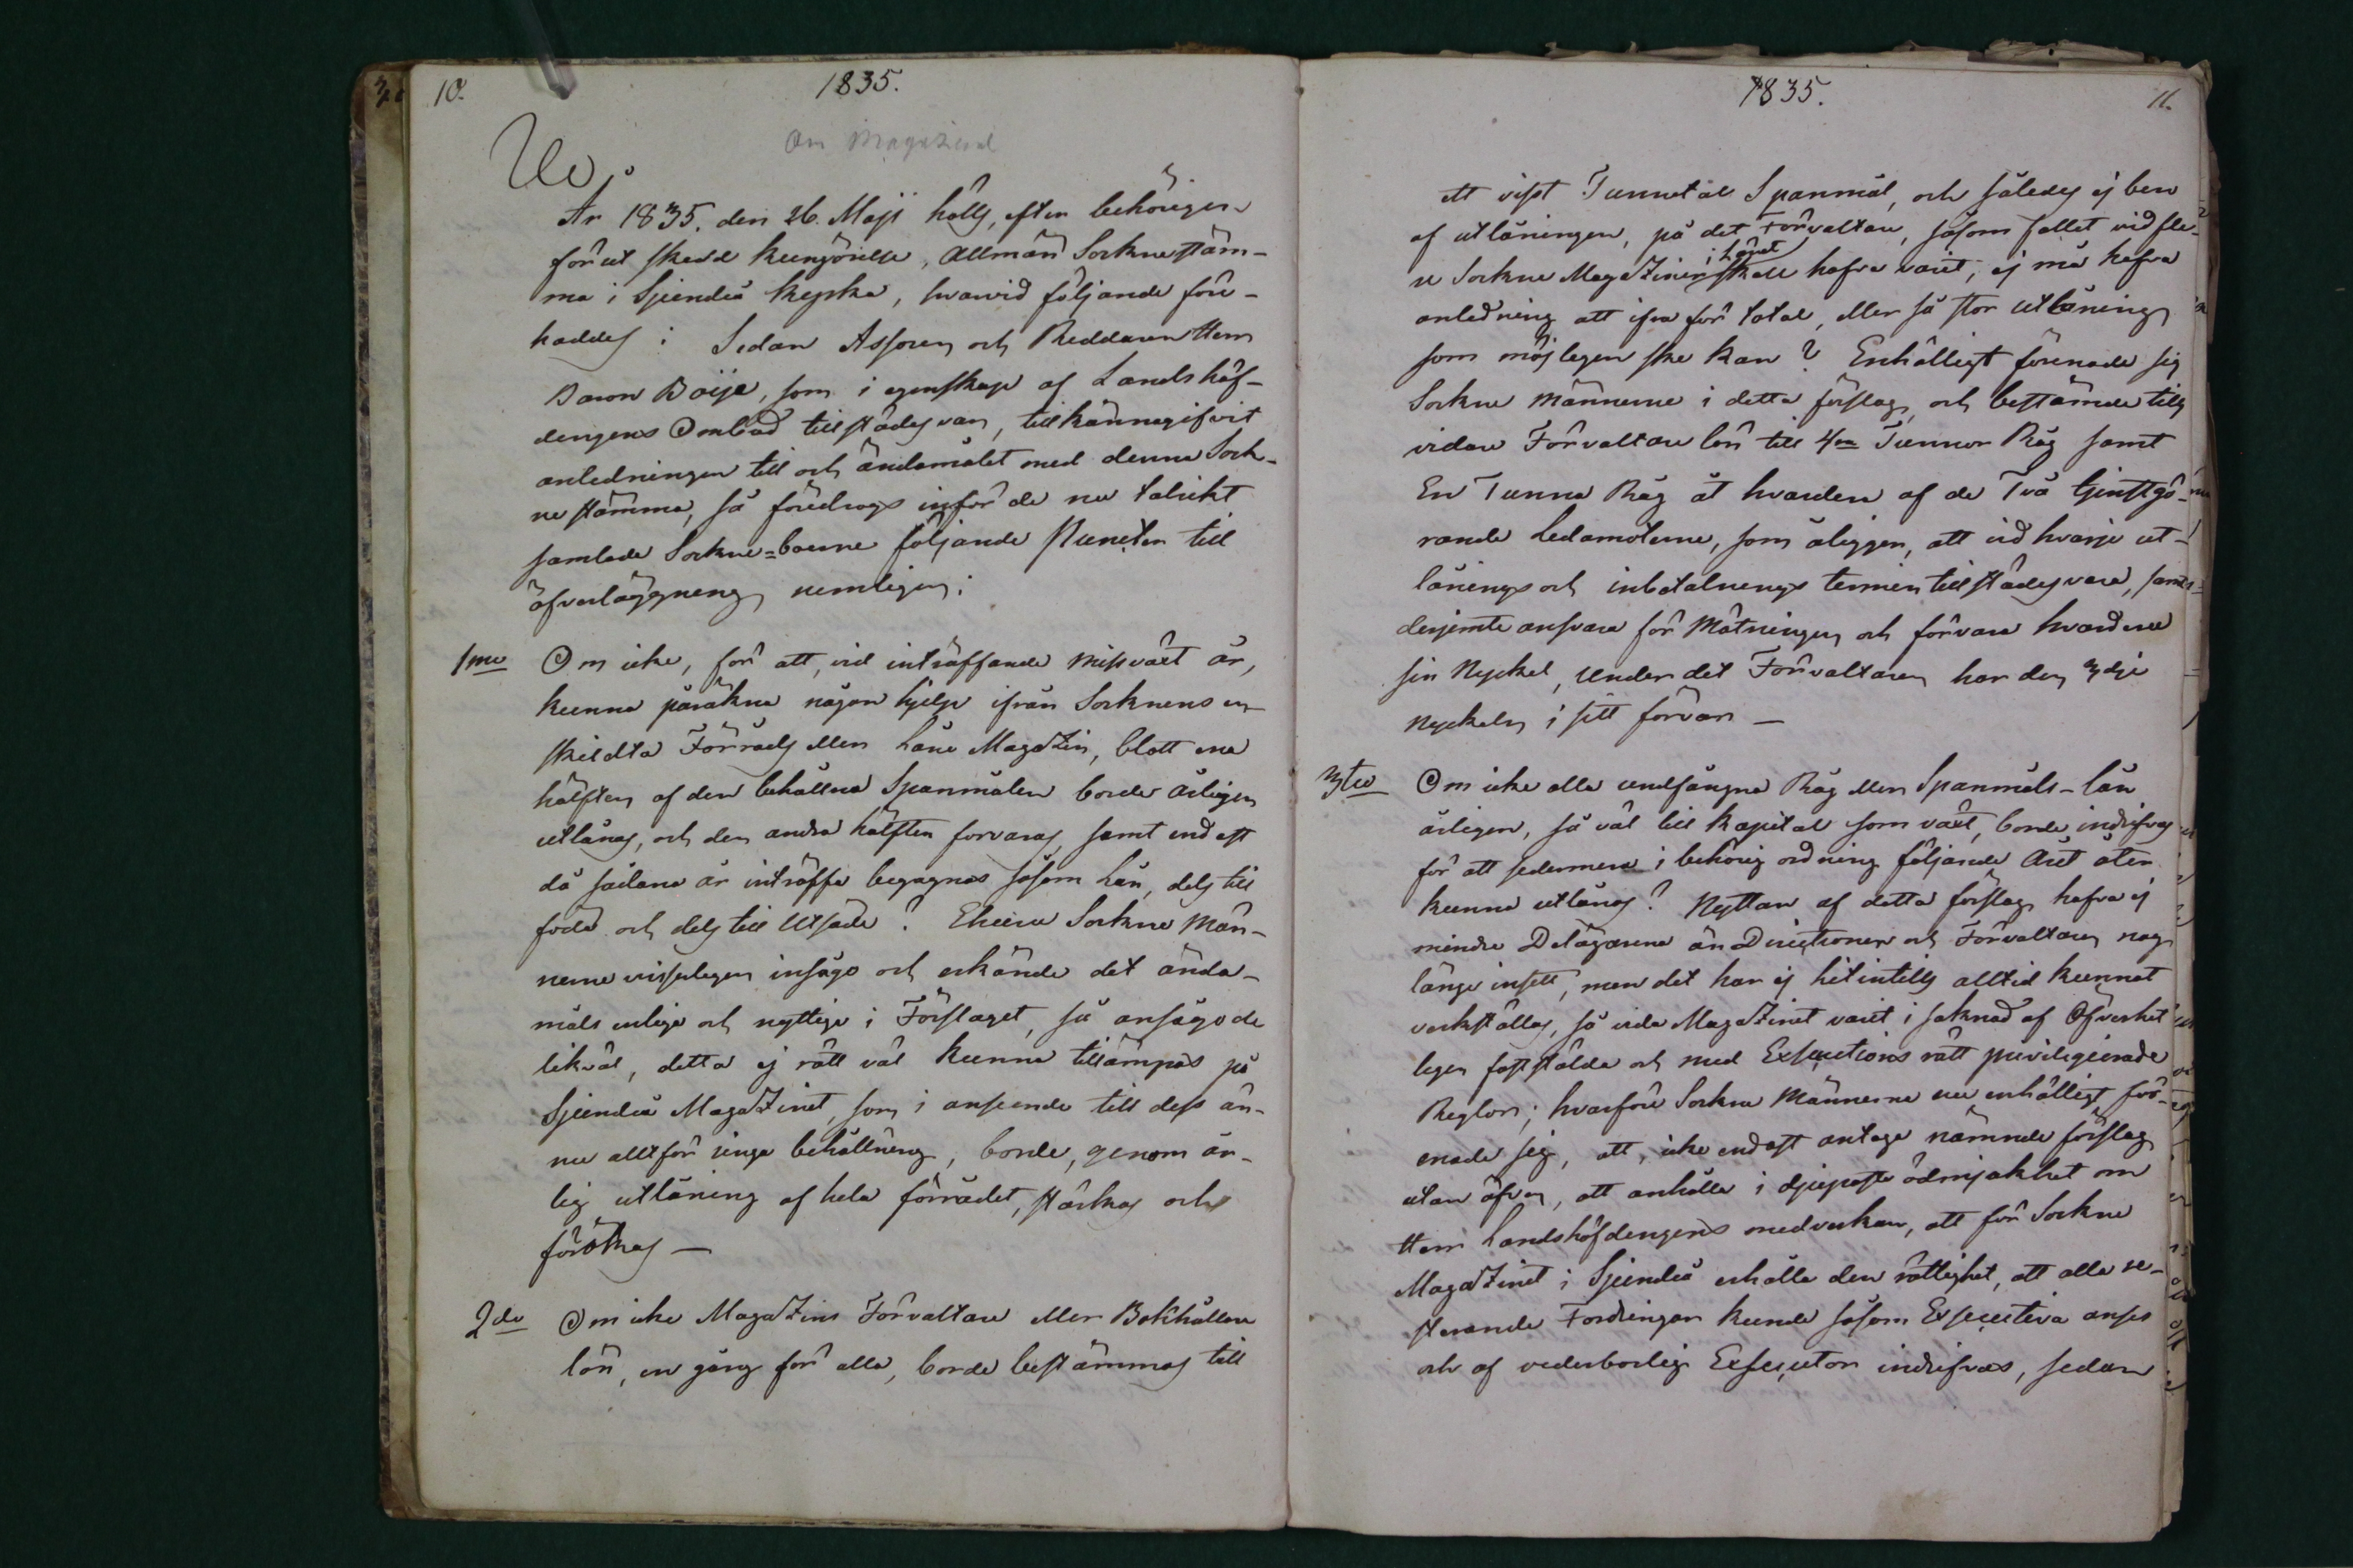 10.
1835.
Om Magazinet
År 1835. den 26. Maji hölls, efter behörigen
förut skedd kungörelse, allmän Socknestäm-
ma i Sjundeå kyrka, hwarvid följande före-
haddes: Sedan Assessoren och Riddaren Herr
Baron Boije, som i egenskap af Landshöf-
dingens Ombud tillstädes var, tillkännagifvit
anledningen till och ändamålet med denna Sock-
nestämma, så föredrogs inför de nu talrikt
samlade Sockne=boerne följande Puncter till
öfverläggning nemligen:
1mo Om icke, för att, vid inträffande missväxt år,
kunna påräkna någon hjelp ifrån Socknens en-
skildta Förråds eller Låne Magazin, blott ena
hälften af den behållna Spanmålen borde årligen
utlånas, och den andra hälften förvaras samt endast
då sådana år inträffa begagnas såsom lån, dels till
föda och dels till Utsäde? Ehuru Sockne Män-
nerne visserligen insågo och erkände det ända-
måls enliga och nyttiga i Förslaget, så ansågo de
likväl, detta ej rätt väl kunna tillämpas på
Sjundeå Magazinet, som i anseende till dess än-
nu alltför ringa behållning, borde, genom år-
lig utlåning af hela förrådet, stärkas och
förökas —
2do Om icke Magazins Förvaltare eller Bokhållare
lön, en gång för alla, borde bestämmas till
1835.
11.
ett visst Tunnetal Spanmål, och således ej bero
af utlåningen, på det Förvaltare, såsom fallet vid fle-
re Sockne Magaziner i Länet skall hafva varit, ej må hafva
anledning att ifra för total, eller så stor utlåning
som möjligen ske kan? Enhälligt förenade sig
Sockne männerne i detta förslag, och bestämde tills
vidare Förvaltare lön till 4ra Tunnor Råg samt
En Tunna Råg åt hvardera af de Två tjenstgö-
rande Ledamöterne, som åligger, att vid hvarje ut-
lånings och inbetalnings termin tillstädes vara, samt
derjemte ansvara för Mätningen och förvara hvardera
sin Nyckel, under det Förvaltaren har den 3dje
Nyckeln i sitt förvar —
3tio Om icke alla undfångna Råg eller Spanmåls-lån
årligen, så väl till Kapital som växt, borde indrifvas
för att sedermera i behörig ordning följande Året åter
kunna utlånas? Nyttan af detta förslag hafva ej
mindre Delägarena än Directionen och Förvaltaren nog
länge insett, men det har ej hitintills alltid kunnat
verkställas, så vida Magazinet varit i saknad af Öfverhet
ligen fastställda och med Executions rätt privilegierade
Reglor; hvarföre Sockne Männerna nu enhälligt för-
enade sig, att, icke endast antaga nämnde förslag
utan äfven, att anhålla i djupaste ödmjukhet om
Herr Landshöfdingens medverkan, att för Sockne
Magazinet i Sjundeå erhålla den rättighet, att alla re-
sterande Fordringar kunde såsom Executiva anses
och af vederbörlig Executor indrifvas, sedan